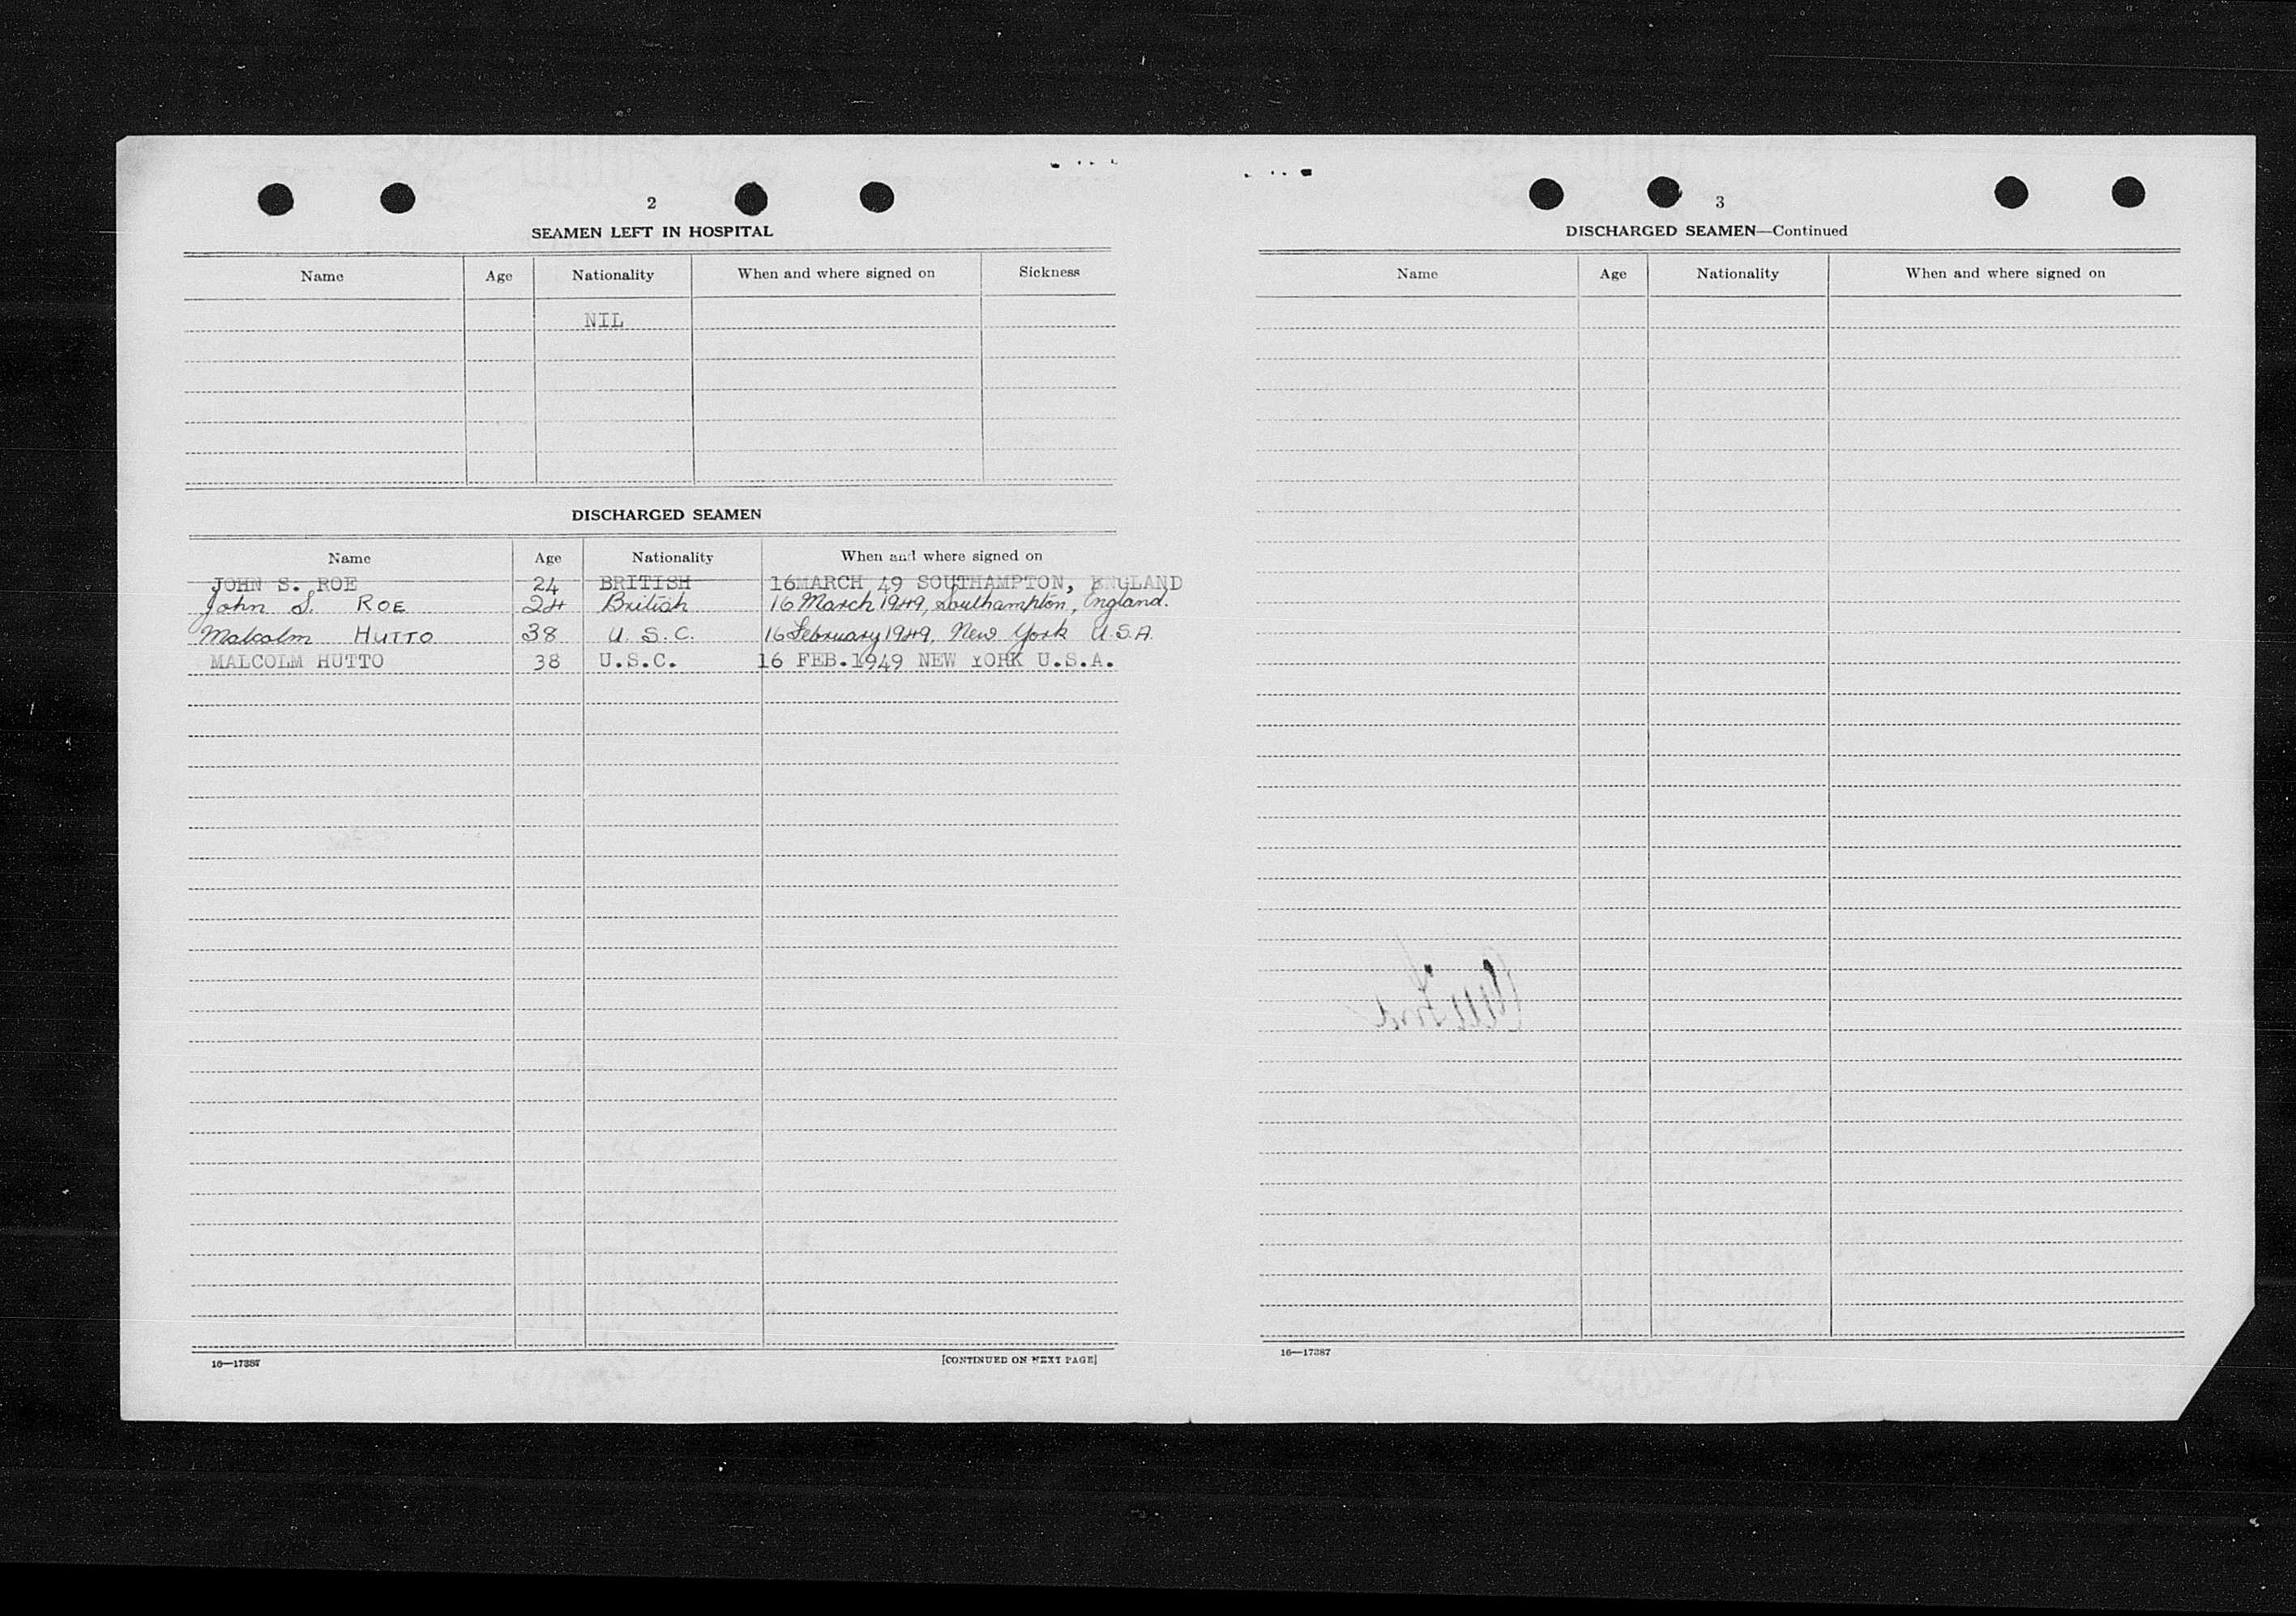 2
SEAMEN LEFT IN HOSPITAL
Name Age Nationality When and where signed on Sickness
NIL
DISCHARGED SEAMEN
Name Age Nationality When and where signed on
JOHN S. ROE 24 BRITISH 16MARCH 49 SOUTHAMPTON, ENGLAND
John S. ROE 24 British 16 March 1949, Southampton, England.
Malcolm HUTTO 38 U.S.C. 16 February 1949, New York U.S.A.
MALCOLM HUTTO 38 U.S.C. 16 FEB.1949 NEW YORK U.S.A.
16—17387
[CONTINUED ON NEXT PAGE]
3
DISCHARGED SEAMEN—Continued
Name Age Nationality When and where signed on
16—17387